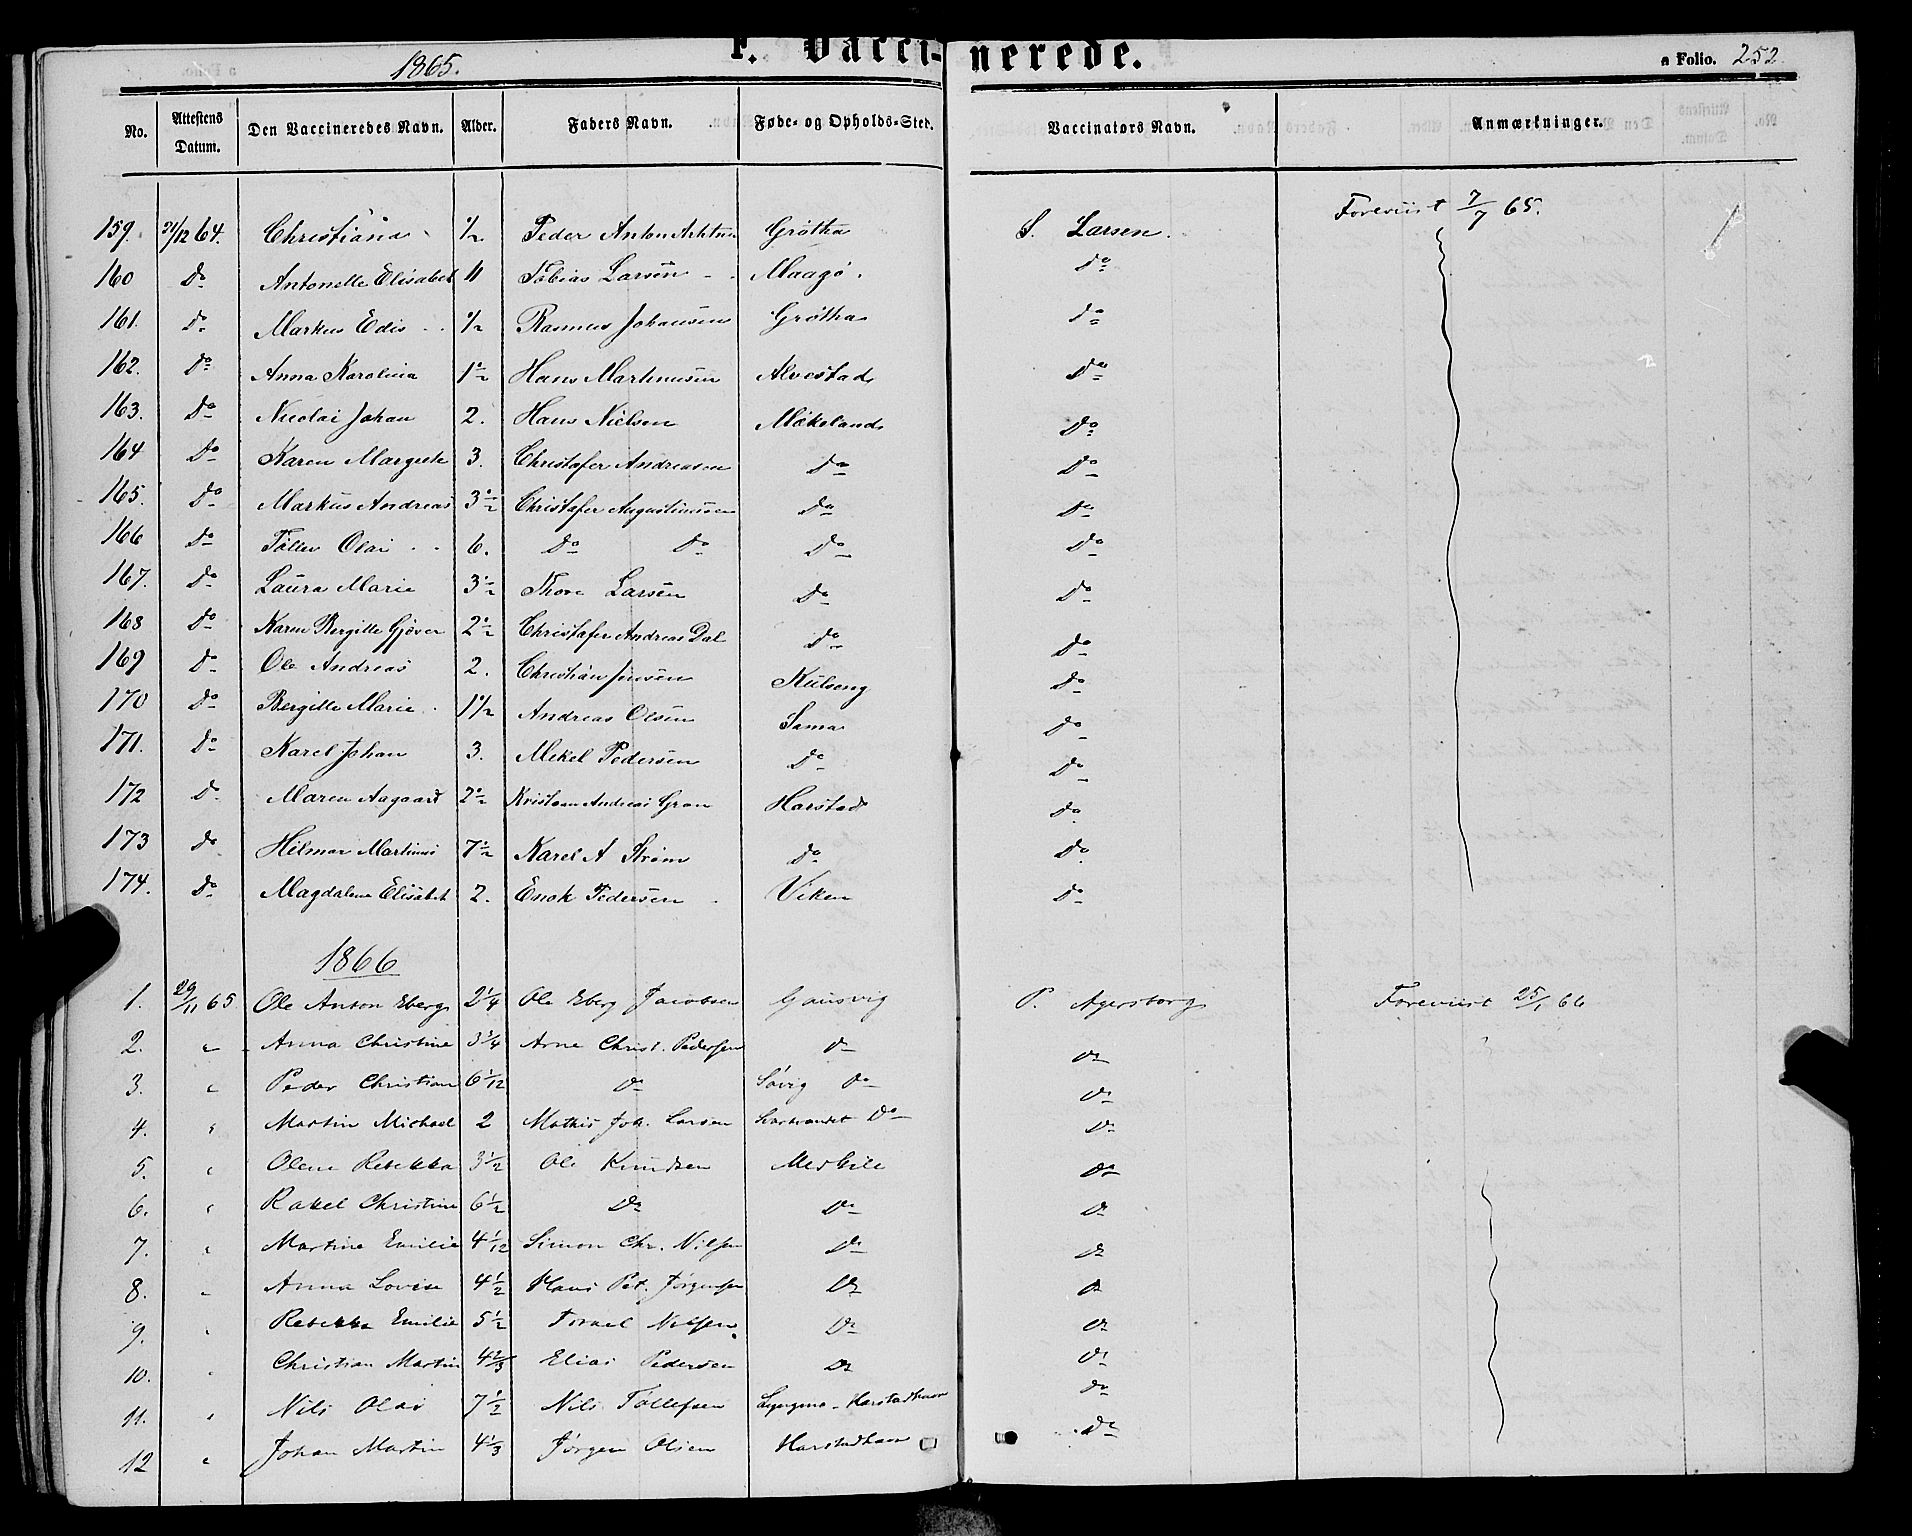 1865.
F. Vaccinerede.
a Folio. 252
No. | Attestens Datum. | Den Vaccineredes Navn. | Alder. | Faders Navn. | Føde- og Opholds-Sted. | Vaccinatørs Navn. | Anmærkninger.
159. 31/12 64. Christiana 1/2 Peder Anton Grøtha S. Larsen. Foreviist 7/7 65.
160 Do Antonette Elisabet 11 Tobias Larsen Maagø. Do
161. Do Markus Edis 1/2 Rasmus Johansen Grøtha Do
162. Do Anna Karolina 1 1/2 Hans Martinusen Alvestad Do
163. Do Nicolai Johan 2. Hans Nielsen Møkeland Do
164 Do Karen Margrete 3. Christofer Andreasen Do Do
165. Do Markus Andreas 3 1/2 Christofer Augustinusen Do Do
166 Do Tøller Olai 6. Do Do Do Do
167. Do Laura Marie 3 1/2 Thore Larsen Do Do
168 Do Karen Bergitte Gjøver 2 1/2 Christofer Andreas Dal Do Do
169 Do Ole Andreas 2. Christian Jensen Kulseng Do
170 Do Bergitte Marie 1 1/2 Andreas Olsen Sama Do
171. Do Karel Johan 3. Mekel Pedersen Do Do
172 Do Maren Aagaard 2 1/2 Kristian Andreas Gran Harstad Do
173 Do Hilmar Martinus 7 1/2 Karel A Strøm Do Do
174. Do Magdalena Elisabet 2. Enok Pedersen Viken Do
1866
1. 29/11 65 Ole Anton Eberg 2 1/4 Ole Eberg Jacobsen Gausvig P. Agersborg Foreviist 25/1 66
2. " Anna Christine 3 3/4 Arne Christ. Pedersen Do Do
3. " Peder Christian 6 1/12 Do Søvig Do Do
4. " Martin Michael 2 Mathis Joh. Larsen Do Do
5. " Olene Rebekka 3 1/2 Ole Knudsen Melbile Do
6. " Rakel Christine 6 1/2 Do Do Do
7. " Martine Emilie 4 1/12 Simon Chr. Nilsen Do Do
8. " Anna Lovise 4 1/2 Hans Pet. Jørgensen Do Do
9. " Rebekka Emilie 5 1/2 Torkel Nilsen Do Do
10. " Christian Martin 4 2/3 Elias Pedersen Do Do
11. " Nils Olai 7 1/2 Nils Tollefsen Harstadhavn Do
12 " Johan Martin 4 1/3 Jørgen Olsen Harstadhavn Do